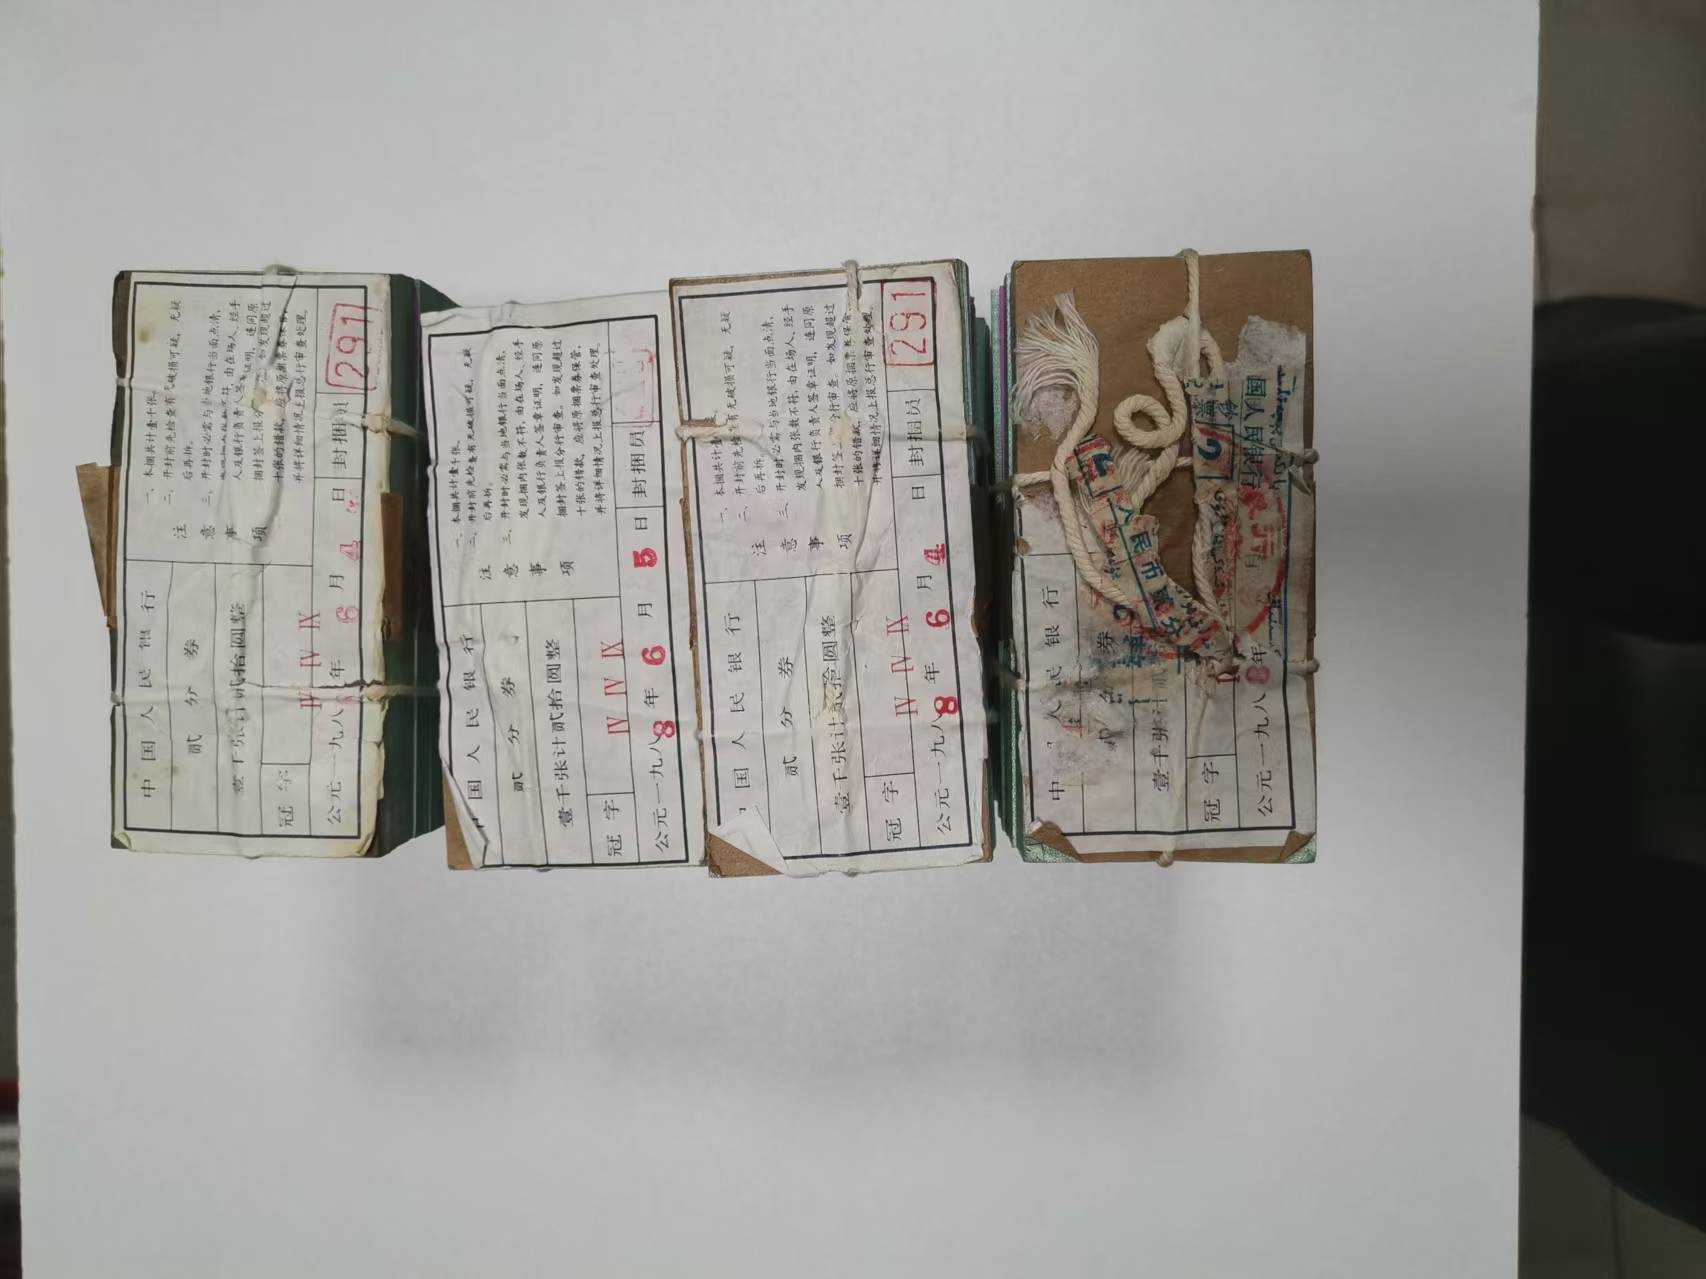 中国人民银行
贰分券
壹千张计贰拾圆整
冠字 IV IV IX
公元一九八 年 6 月 4 日 封捆员 291
注意事项
一、本捆共计壹千张。
二、开封前先检查有无破损可疑，无疑
后再拆。
三、开封时必需与当地银行当面点清，
人及银行负责人签章证明，连同原
捆封签上报分 如发现超过
十张的错款，应将原捆票券保管
并将详细情况上报总行审查处理。
国人民银行
贰分券
壹千张计贰拾圆整
冠字 IV IV IX
公元一九八8年 6 月 5 日 封捆员
注意事项
一、本捆共计壹千张。
二、开封前先检查有无破损可疑，无疑
后再拆。
三、开封时必需与当地银行当面点清，
发现捆内张数不符，由在场人、经手
人及银行负责人签章证明，连同原
捆封签上报分行审查。如发现超过
十张的错款，应将原捆票券保管，
并将详细情况上报总行审查处理。
国人民银行
贰分券
壹千张计贰拾圆整
冠字 IV IV IX
公元一九八8年 6 月 4 日 封捆员 291
注意事项
一、本捆共计壹
二、开封前先检查有无破损可疑，无疑
后再拆。
三、开封时必需与当地银行当面点清，
发现捆内张数不符，由在场人、经手
人及银行负责人签章证明，连同原
捆封签上报分行审查。如发现超过
十张的错款，应将原捆票券保管
并将详细情况上报总行审查处理。
中 人民银行
券
壹千张计贰
冠字
公元一九八8年
人民币贰分
国人民